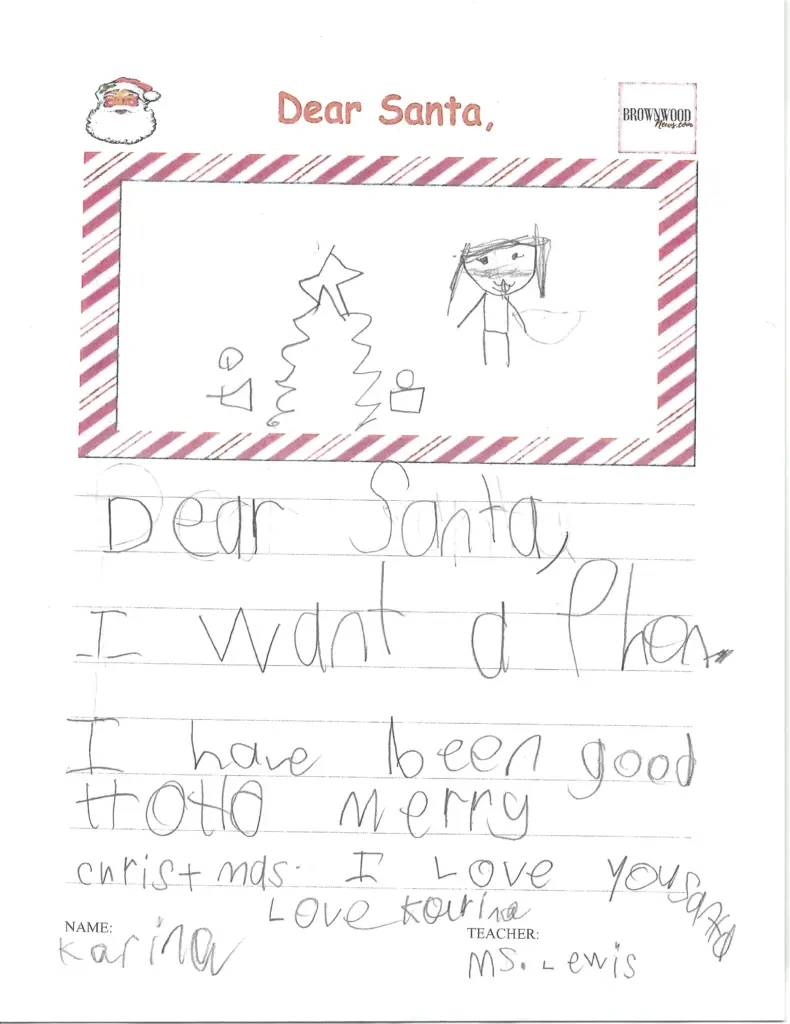 Dear Santa,
BROWNWOOD
News.com
Dear Santa,
I want a Phon.
I have been good
HOHO merry
christmas. I Love You Santa
Love Karina
NAME:
Karina
TEACHER:
Ms. Lewis